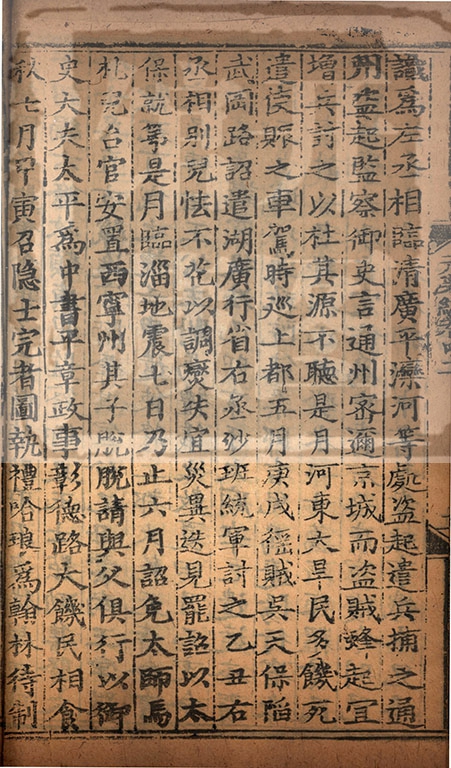 識爲左丞相臨清廣平灤河等處盗起遣兵捕之通
州盗起監察御史言通州密邇京城而盗賊蜂起宜
增兵討之以杜其源不聽是月河東大旱民多饑死
遣使賑之車駕時巡上都五月庚戌徭賊吳天保陷
武岡路詔遣湖廣行省右丞沙班統軍討之乙丑右
丞相別兒怯不花以調爕失宜災異迭見罷詔以太
保就第是月臨淄地震七日乃止六月詔免太師馬
札兒台官安置西寧州其子脫脫請與父俱行以御
史大夫太平爲中書平章政事彰德路大饑民相食
秋七月甲寅召隐士完者圖執禮哈琅爲翰林待制